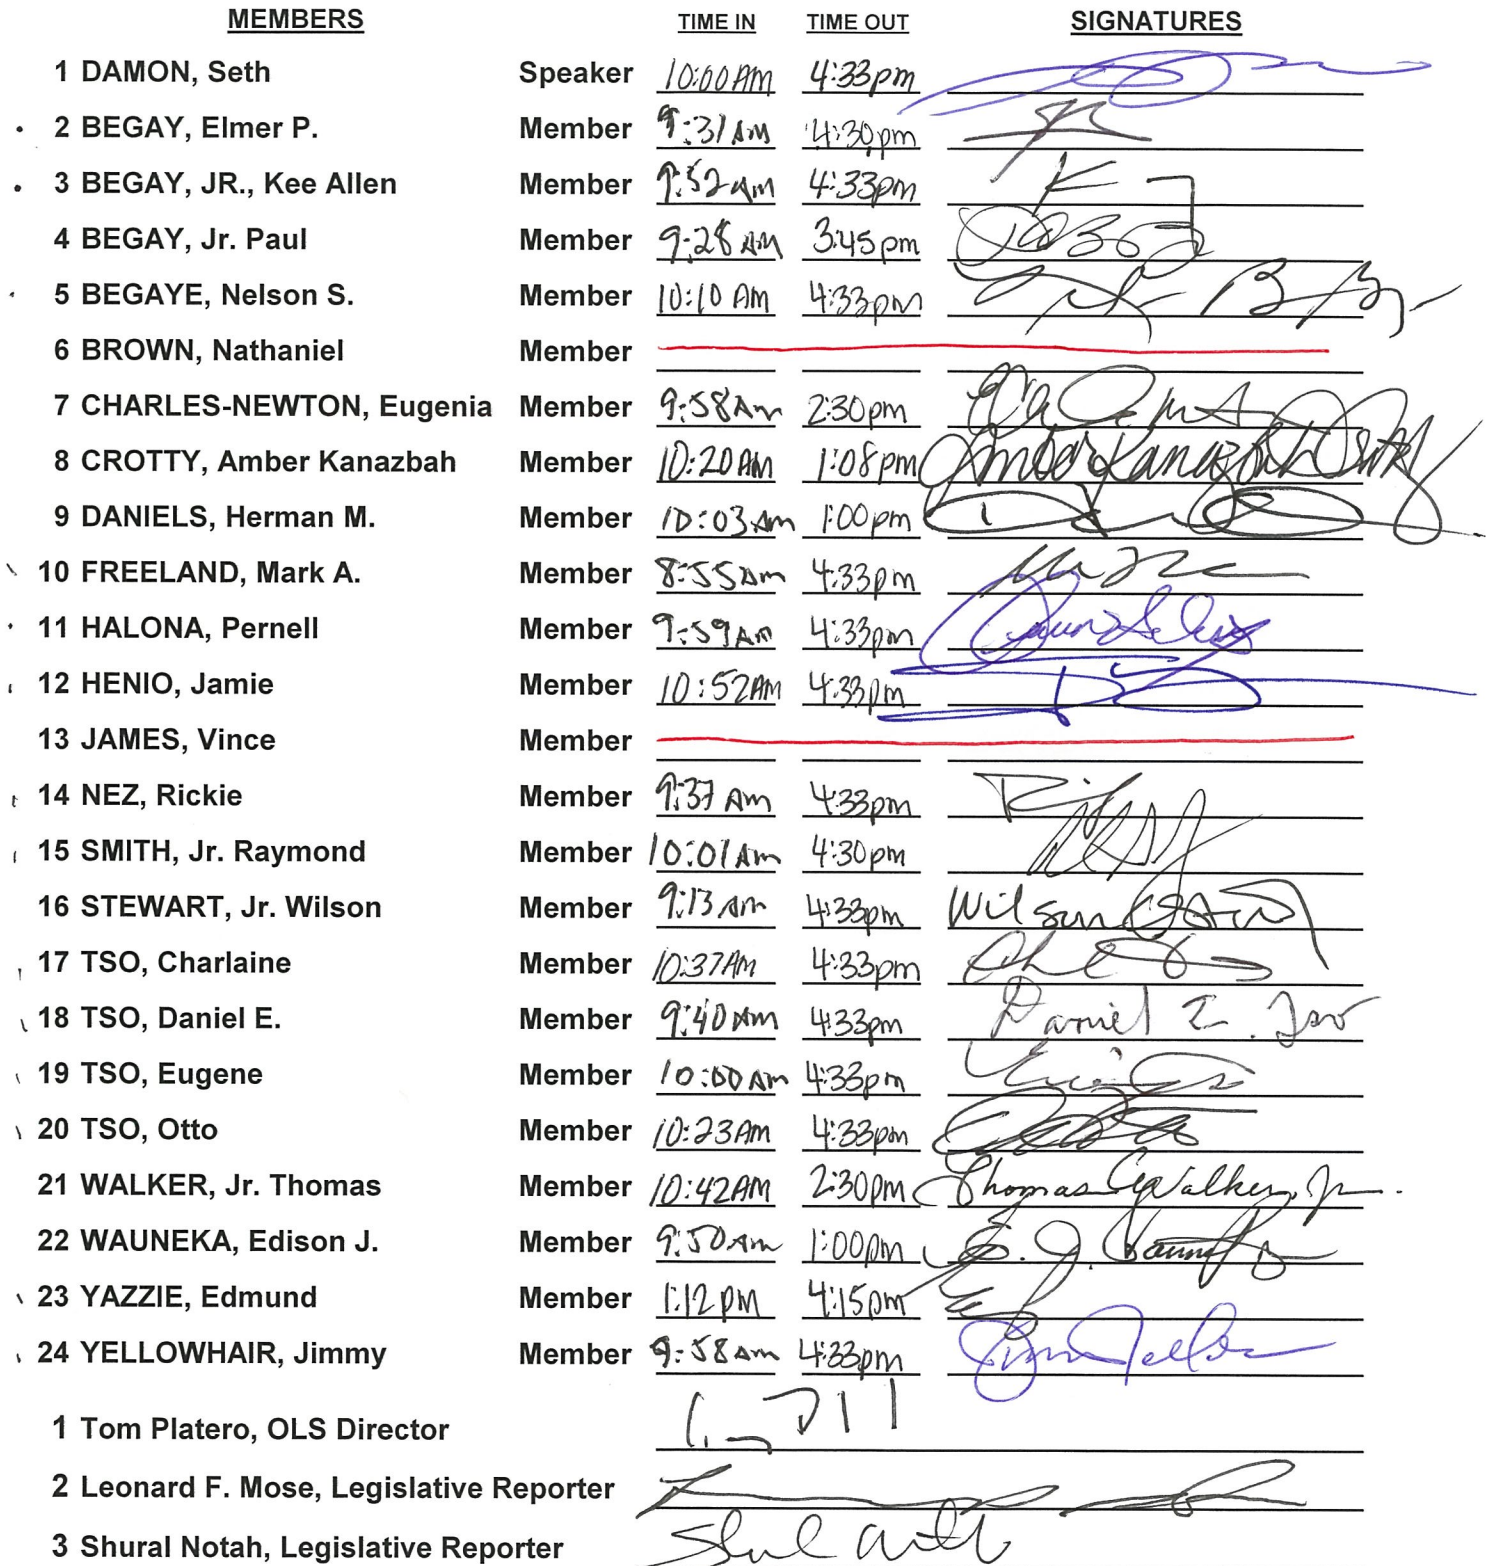 MEMBERS TIME IN TIME OUT SIGNATURES
1 DAMON, Seth Speaker 10:00 AM 4:33pm
2 BEGAY, Elmer P. Member 9:31 AM 4:30pm
3 BEGAY, JR., Kee Allen Member 9:52 am 4:33pm
4 BEGAY, Jr. Paul Member 9:28 AM 3:45pm
5 BEGAYE, Nelson S. Member 10:10 AM 4:33pm
6 BROWN, Nathaniel Member
7 CHARLES-NEWTON, Eugenia Member 9:58 Am 2:30pm
8 CROTTY, Amber Kanazbah Member 10:20 AM 1:08pm Amber Kanazbah Crotty
9 DANIELS, Herman M. Member 10:03 Am 1:00pm
10 FREELAND, Mark A. Member 8:55 Am 4:33pm
11 HALONA, Pernell Member 9:59 Am 4:33pm
12 HENIO, Jamie Member 10:52AM 4:33pm
13 JAMES, Vince Member
14 NEZ, Rickie Member 9:37 Am 4:33pm
15 SMITH, Jr. Raymond Member 10:01 Am 4:30pm
16 STEWART, Jr. Wilson Member 9:13 Am 4:33pm Wilson
17 TSO, Charlaine Member 10:37AM 4:33pm
18 TSO, Daniel E. Member 9:40 Am 4:33pm Daniel E. Tso
19 TSO, Eugene Member 10:00 Am 4:33pm
20 TSO, Otto Member 10:23AM 4:33pm
21 WALKER, Jr. Thomas Member 10:42AM 2:30pm Thomas Walker, Jr.
22 WAUNEKA, Edison J. Member 9:50 Am 1:00pm E. J.
23 YAZZIE, Edmund Member 1:12 PM 4:15pm
24 YELLOWHAIR, Jimmy Member 9:58 Am 4:33pm
1 Tom Platero, OLS Director
2 Leonard F. Mose, Legislative Reporter
3 Shural Notah, Legislative Reporter